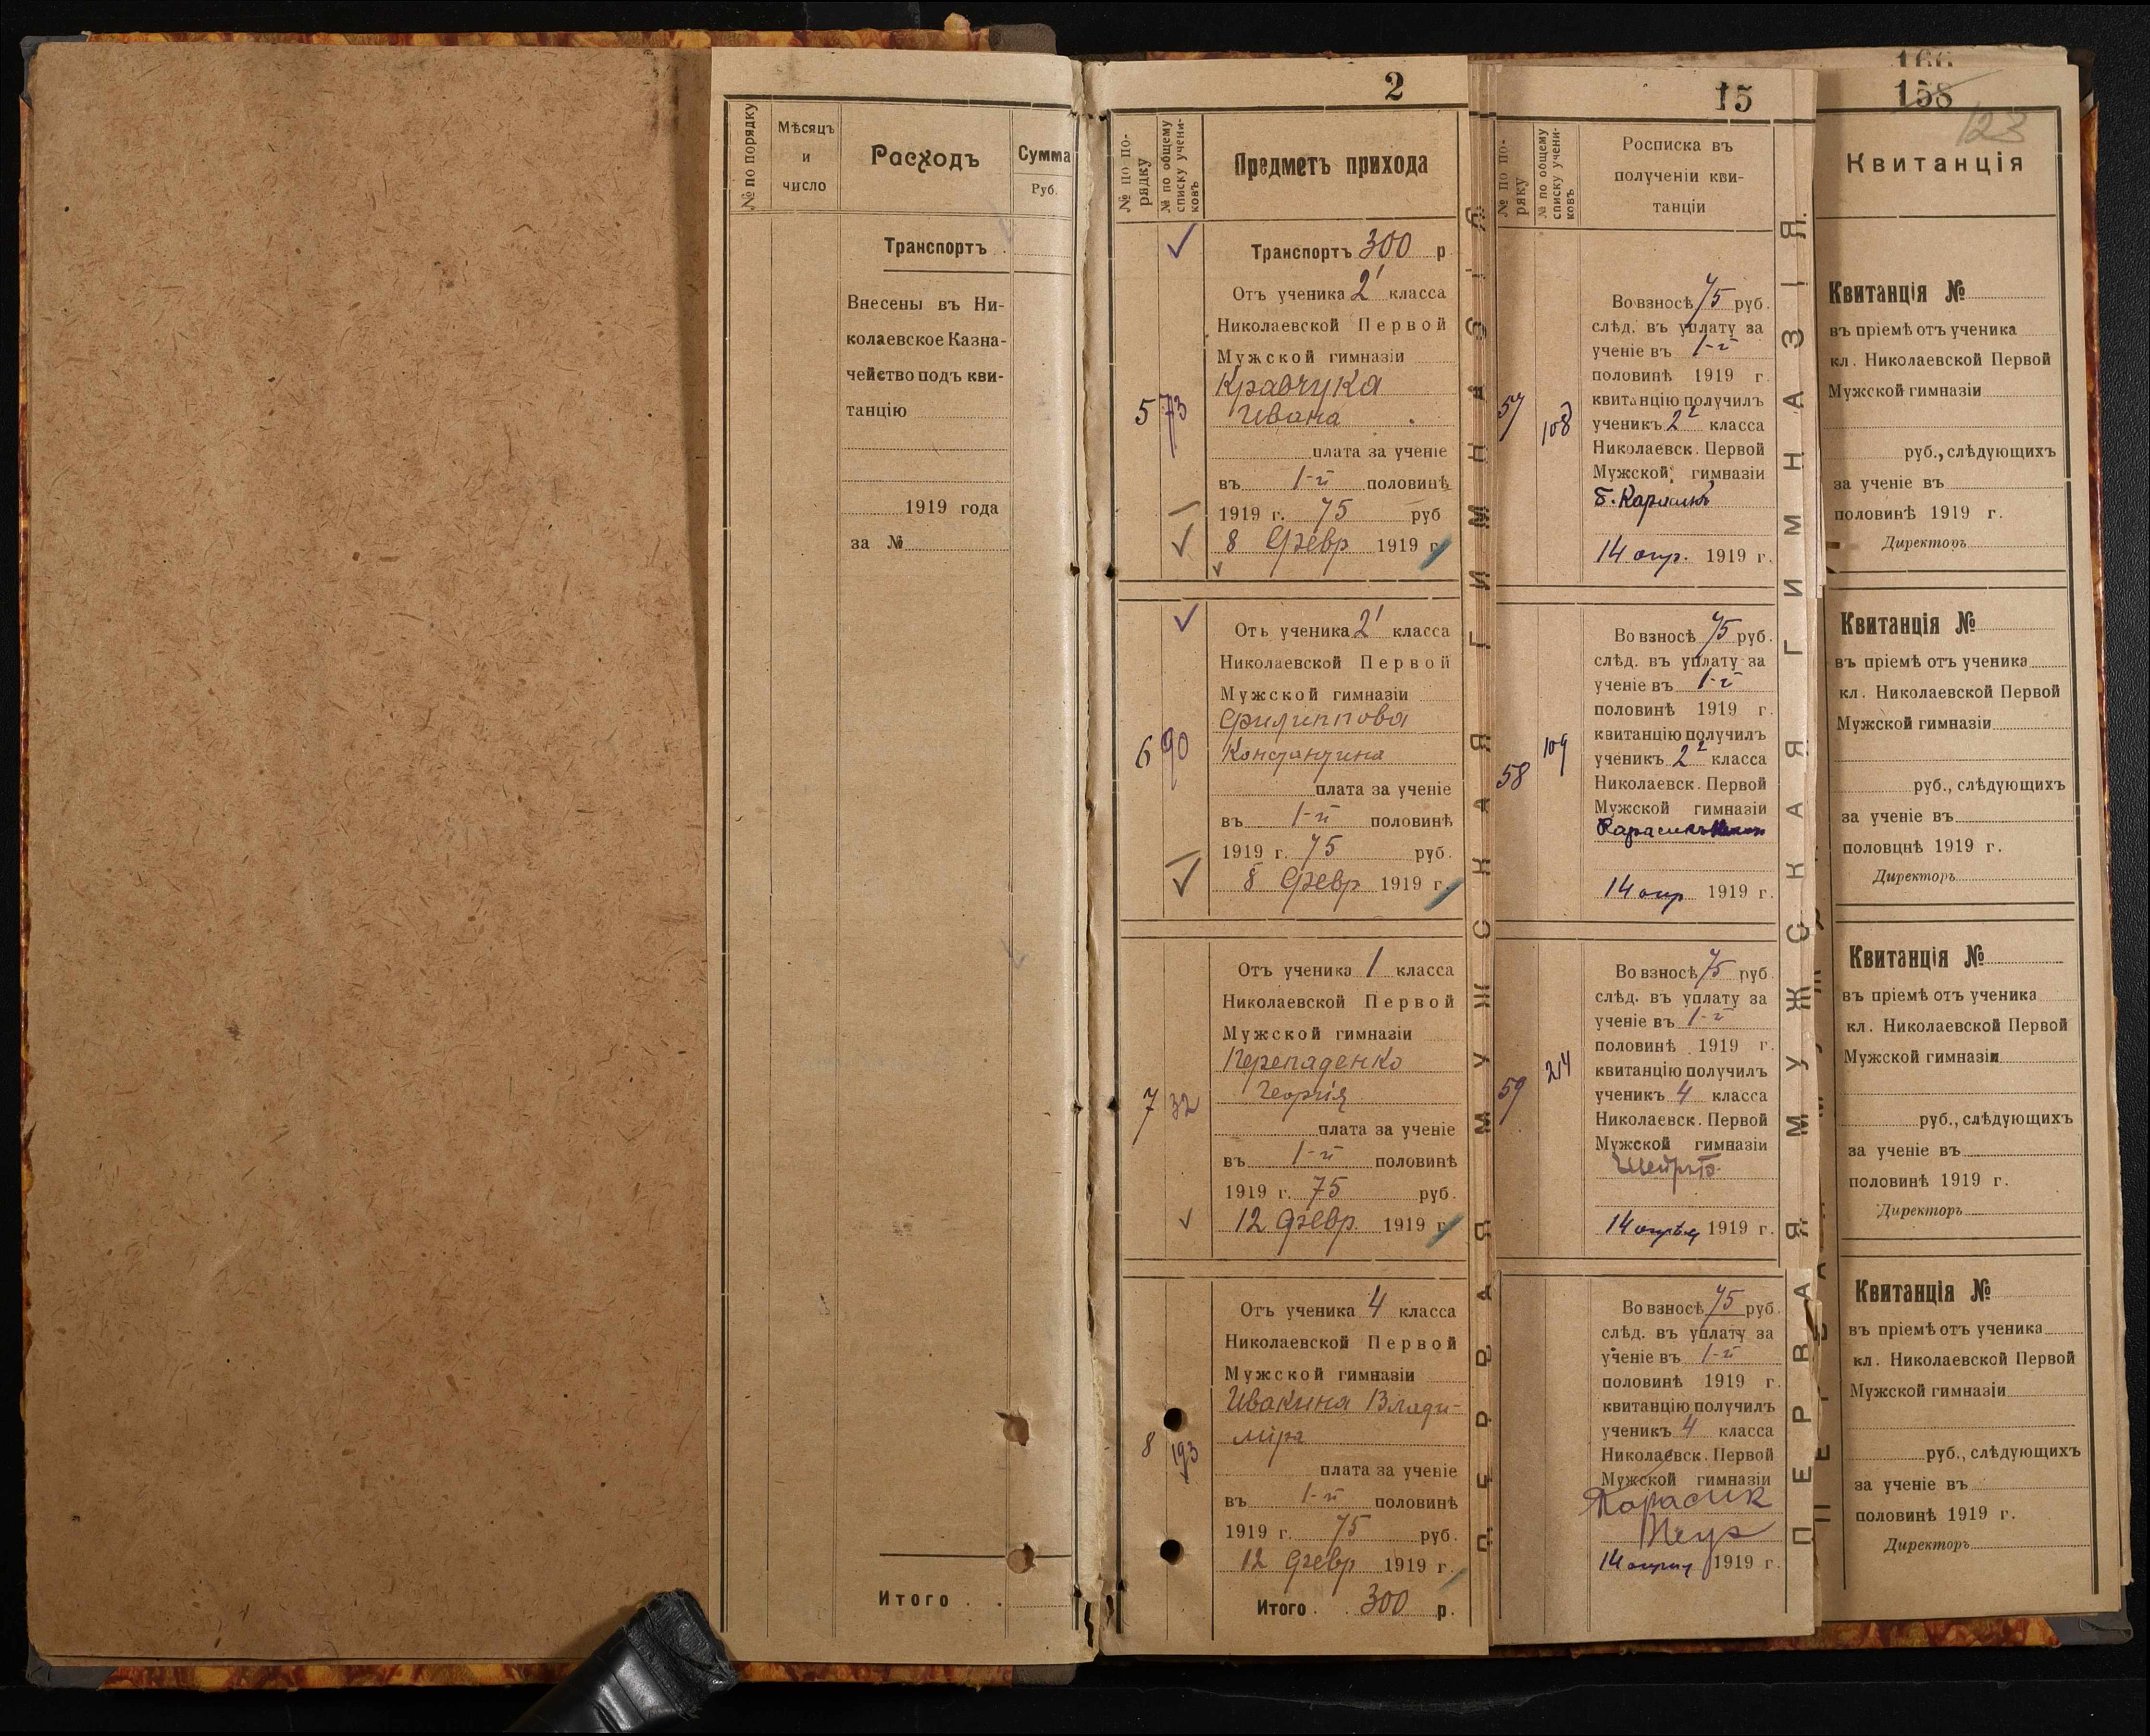 № по порядку
Мѣсяцъ
и
число
Расходъ
Сумма
Руб.
Транспортъ
Внесены въ Ни-
колаевское Казна-
чейство подъ кви-
танцію
1919 года
за №
Итого . .
2
№ по по-
рядку
№ по общему
списку учени-
ковъ
Предметъ прихода
Транспортъ 300 р
Отъ ученика 2¹ класса
Николаевской Первой
Мужской гимназіи
Кравчука
5 73 Ивана
плата за ученіе
въ 1-й половинѣ
1919 г. 75 руб
8 Февр 1919 г
Отъ ученика 2¹ класса
Николаевской Первой
Мужской гимназіи
Филиппова
6 90 Константина
плата за ученіе
въ 1-й половинѣ
1919 г. 75 руб.
8 Февр 1919 г.
Отъ ученика 1 класса
Николаевской Первой
Мужской гимназіи
Перепаденко
7 32 Георгія
плата за ученіе
въ 1-й половинѣ
1919 г. 75 руб.
12 Февр. 1919 г
Отъ ученика 4 класса
Николаевской Первой
Мужской гимназіи
Ивакина Влади-
8 193 міра
плата за ученіе
въ 1-й половинѣ
1919 г. 75 руб.
12 Февр 1919 г.
Итого . . 300 р.
ПЕРВАЯ МУЖСКАЯ ГИМНАЗІЯ
15
№ по по-
ряку
№ по общему
списку учени-
ковъ
Росписка въ
полученіи кви-
танціи
Во взносѣ 75 руб.
слѣд. въ уплату за
ученіе въ 1-й
половинѣ 1919 г.
квитанцію получилъ
57 108 ученикъ 2² класса
Николаевск. Первой
Мужской гимназіи
Б. Карасикъ
14 апр. 1919 г.
Во взносѣ 75 руб.
слѣд. въ уплату за
ученіе въ 1-й
половинѣ 1919 г.
квитанцію получилъ
58 109 ученикъ 2² класса
Николаевск. Первой
Мужской гимназіи
Карасикъ
14 апр 1919 г.
Во взносѣ 75 руб
слѣд. въ уплату за
ученіе въ 1-й
половинѣ 1919 г.
квитанцію получилъ
59 214 ученикъ 4 класса
Николаевск. Первой
Мужской гимназіи
14 апрѣля 1919 г.
Во взносѣ 75 руб.
слѣд. въ уплату за
ученіе въ 1-й
половинѣ 1919 г.
квитанцію получилъ
ученикъ 4 класса
Николаевск. Первой
Мужской гимназіи
Карасик
14 апрѣля 1919 г.
ПЕРВАЯ МУЖСКАЯ ГИМНАЗІЯ.
166
158
123
Квитанція
Квитанція №
въ пріемѣ отъ ученика
кл. Николаевской Первой
Мужской гимназіи
руб., слѣдующихъ
за ученіе въ
половинѣ 1919 г.
Директоръ
Квитанція №
въ пріемѣ отъ ученика
кл. Николаевской Первой
Мужской гимназіи
руб., слѣдующихъ
за ученіе въ
половцнѣ 1919 г.
Директоръ
Квитанція №
въ пріемѣ отъ ученика
кл. Николаевской Первой
Мужской гимназіи
руб., слѣдующихъ
за ученіе въ
половинѣ 1919 г.
Директоръ
Квитанція №
въ пріемѣ отъ ученика
кл. Николаевской Первой
Мужской гимназіи
руб., слѣдующихъ
за ученіе въ
половинѣ 1919 г.
Директоръ